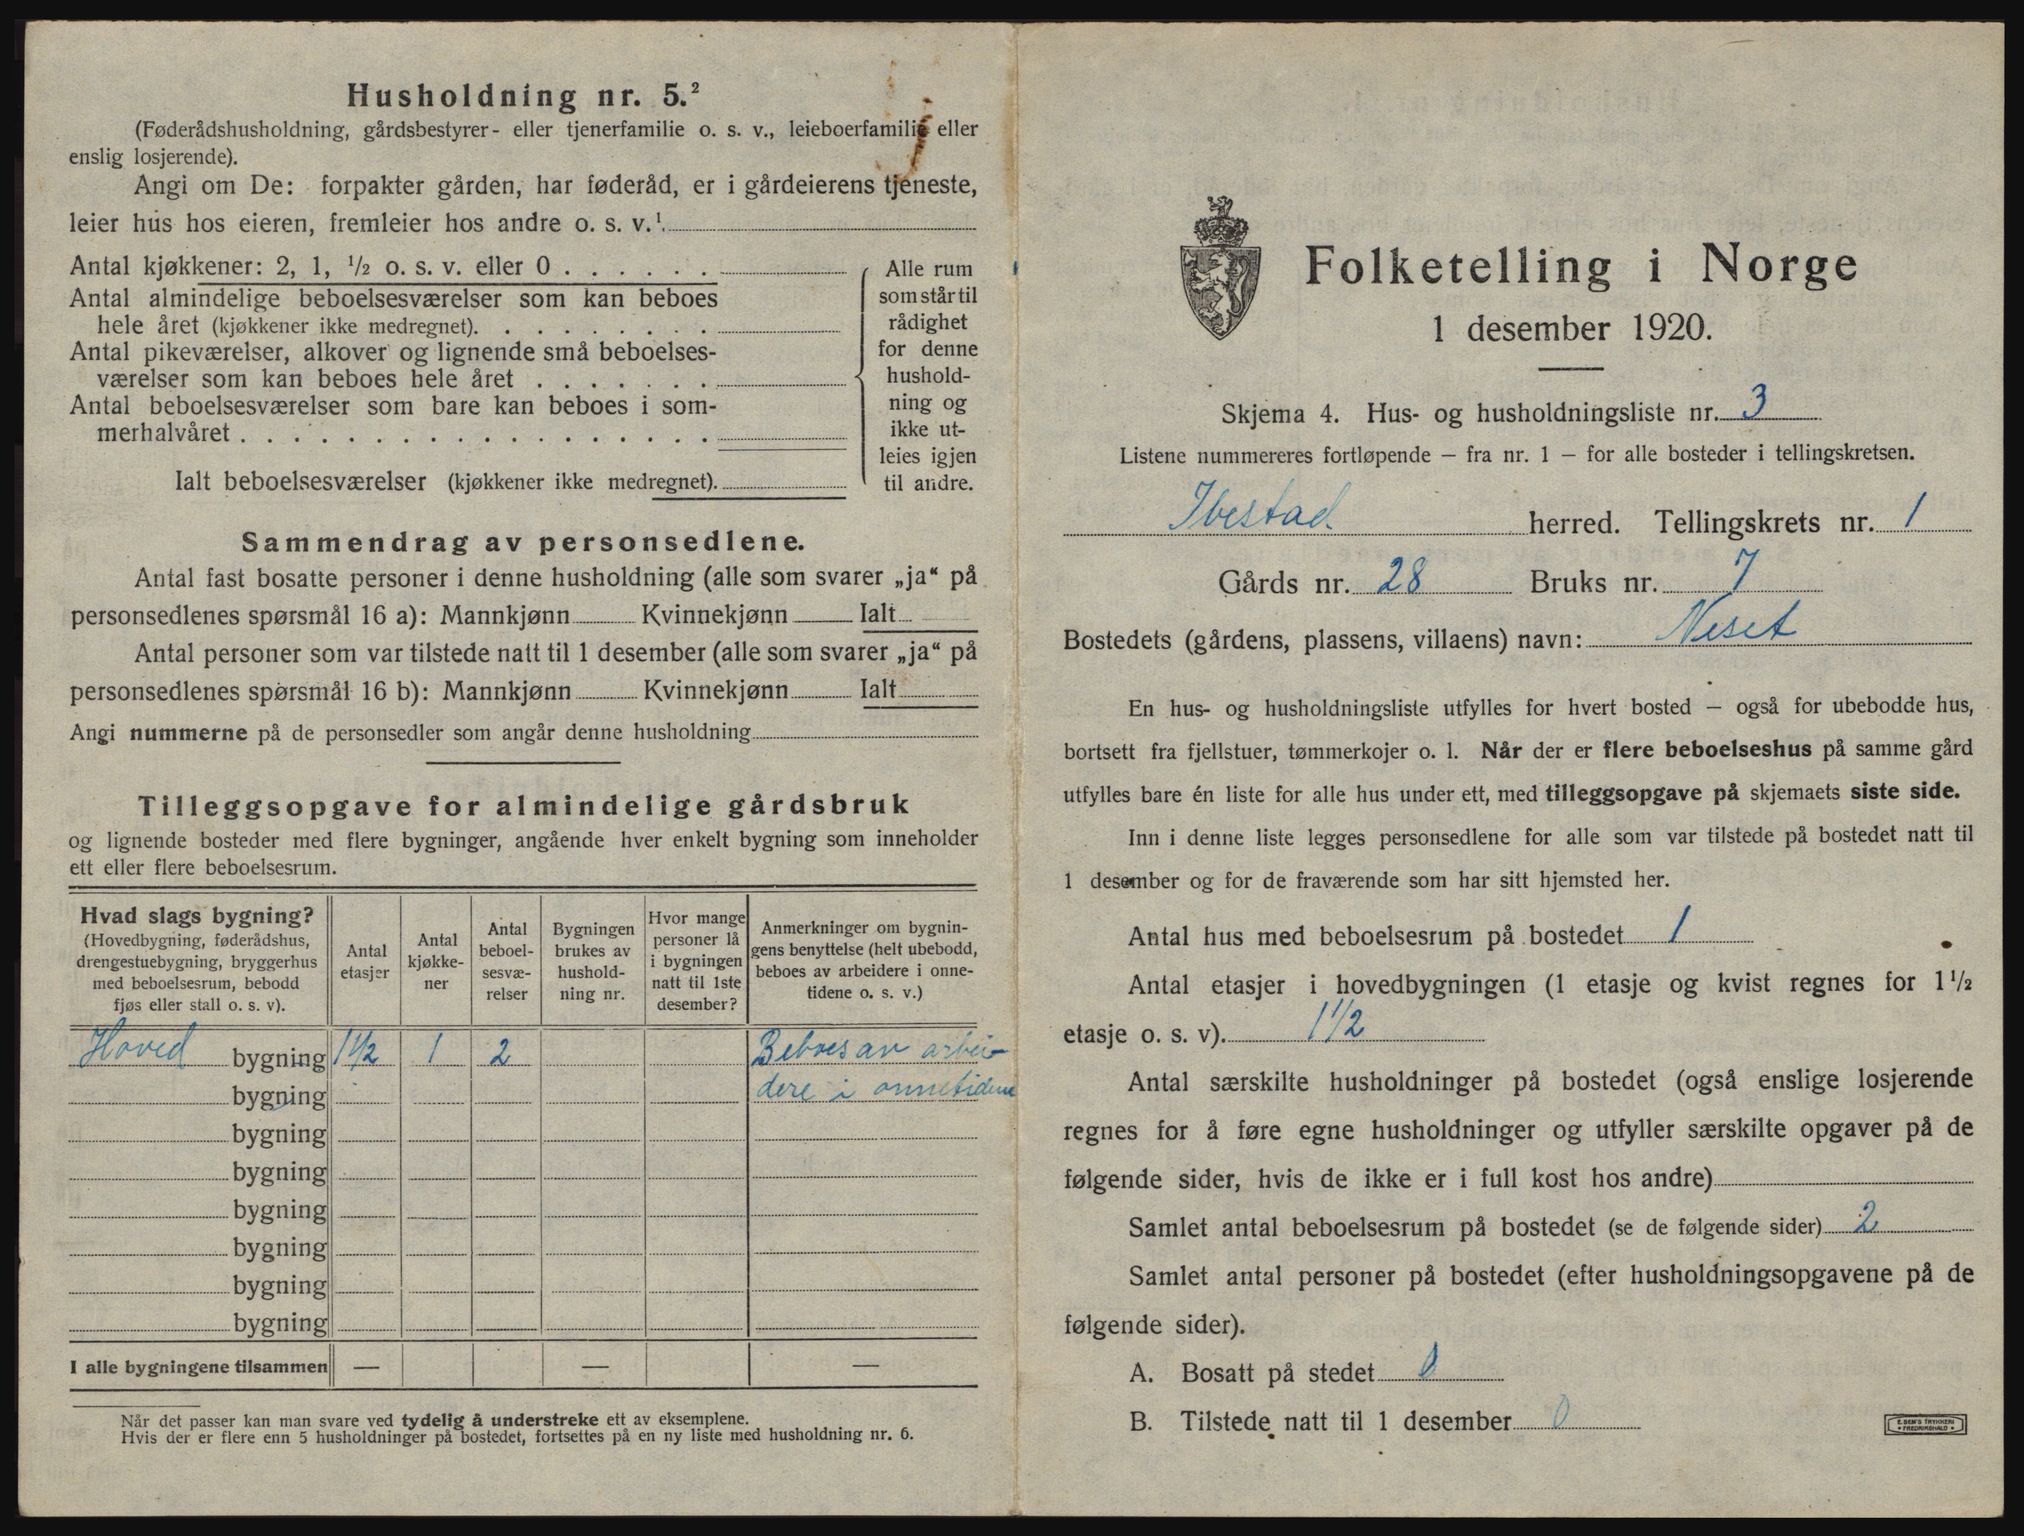 Husholdning nr. 5.²
(Føderådshusholdning, gårdsbestyrer- eller tjenerfamilie o. s. v., leieboerfamilie eller
enslig losjerende).
Angi om De: forpakter gården, har føderåd, er i gårdeierens tjeneste,
leier hus hos eieren, fremleier hos andre o. s. v.¹
Antal kjøkkener: 2, 1, ½ o. s. v. eller 0 . . . . . .
Antal almindelige beboelsesværelser som kan beboes
hele året (kjøkkener ikke medregnet). . . . . . . . .
Antal pikeværelser, alkover og lignende små beboelses-
værelser som kan beboes hele året . . . . . . .
Antal beboelsesværelser som bare kan beboes i som-
merhalvåret . . . . . . . . . . . . . . . . . .
Ialt beboelsesværelser (kjøkkener ikke medregnet).
Alle rum
som står til
rådighet
for denne
hushold-
ning og
ikke ut-
leies igjen
til andre.
Sammendrag av personsedlene.
Antal fast bosatte personer i denne husholdning (alle som svarer „ja“ på
personsedlenes spørsmål 16 a): Mannkjønn Kvinnekjønn Ialt
Antal personer som var tilstede natt til 1 desember (alle som svarer „ja“ på
personsedlenes spørsmål 16 b): Mannkjønn Kvinnekjønn Ialt
Angi nummerne på de personsedler som angår denne husholdning
Tilleggsopgave for almindelige gårdsbruk
og lignende bosteder med flere bygninger, angående hver enkelt bygning som inneholder
ett eller flere beboelsesrum.
Hvad slags bygning?
(Hovedbygning, føderådshus,
drengestuebygning, bryggerhus
med beboelsesrum, bebodd
fjøs eller stall o. s. v).
Antal
etasjer
Antal
kjøkke-
ner
Antal
beboel-
sesvæ-
relser
Bygningen
brukes av
hushold-
ning nr.
Hvor mange
personer lå
i bygningen
natt til 1ste
desember?
Anmerkninger om bygnin-
gens benyttelse (helt ubebodd,
beboes av arbeidere i onne-
tidene o. s. v.)
Hoved bygning 1½ 1 2 Beboes av arbei-
bygning dere i onnetidene
bygning
bygning
bygning
bygning
bygning
bygning
I alle bygningene tilsammen — — —
Når det passer kan man svare ved tydelig å understreke ett av eksemplene.
Hvis der er flere enn 5 husholdninger på bostedet, fortsettes på en ny liste med husholdning nr. 6.
Folketelling i Norge
1 desember 1920.
Skjema 4. Hus- og husholdningsliste nr. 3
Listene nummereres fortløpende — fra nr. 1 — for alle bosteder i tellingskretsen.
Ibestad herred. Tellingskrets nr. 1
Gårds nr. 28 Bruks nr. 7
Bostedets (gårdens, plassens, villaens) navn: Neset
En hus- og husholdningsliste utfylles for hvert bosted — også for ubebodde hus,
bortsett fra fjellstuer, tømmerkojer o. l. Når der er flere beboelseshus på samme gård
utfylles bare én liste for alle hus under ett, med tilleggsopgave på skjemaets siste side.
Inn i denne liste legges personsedlene for alle som var tilstede på bostedet natt til
1 desember og for de fraværende som har sitt hjemsted her.
Antal hus med beboelsesrum på bostedet 1
Antal etasjer i hovedbygningen (1 etasje og kvist regnes for 1½
etasje o. s. v). 1½
Antal særskilte husholdninger på bostedet (også enslige losjerende
regnes for å føre egne husholdninger og utfyller særskilte opgaver på de
følgende sider, hvis de ikke er i full kost hos andre)
Samlet antal beboelsesrum på bostedet (se de følgende sider) 2
Samlet antal personer på bostedet (efter husholdningsopgavene på de
følgende sider).
A. Bosatt på stedet 0
B. Tilstede natt til 1 desember 0
E. SEM'S TRYKKERI
• FREDRIKSHALD •